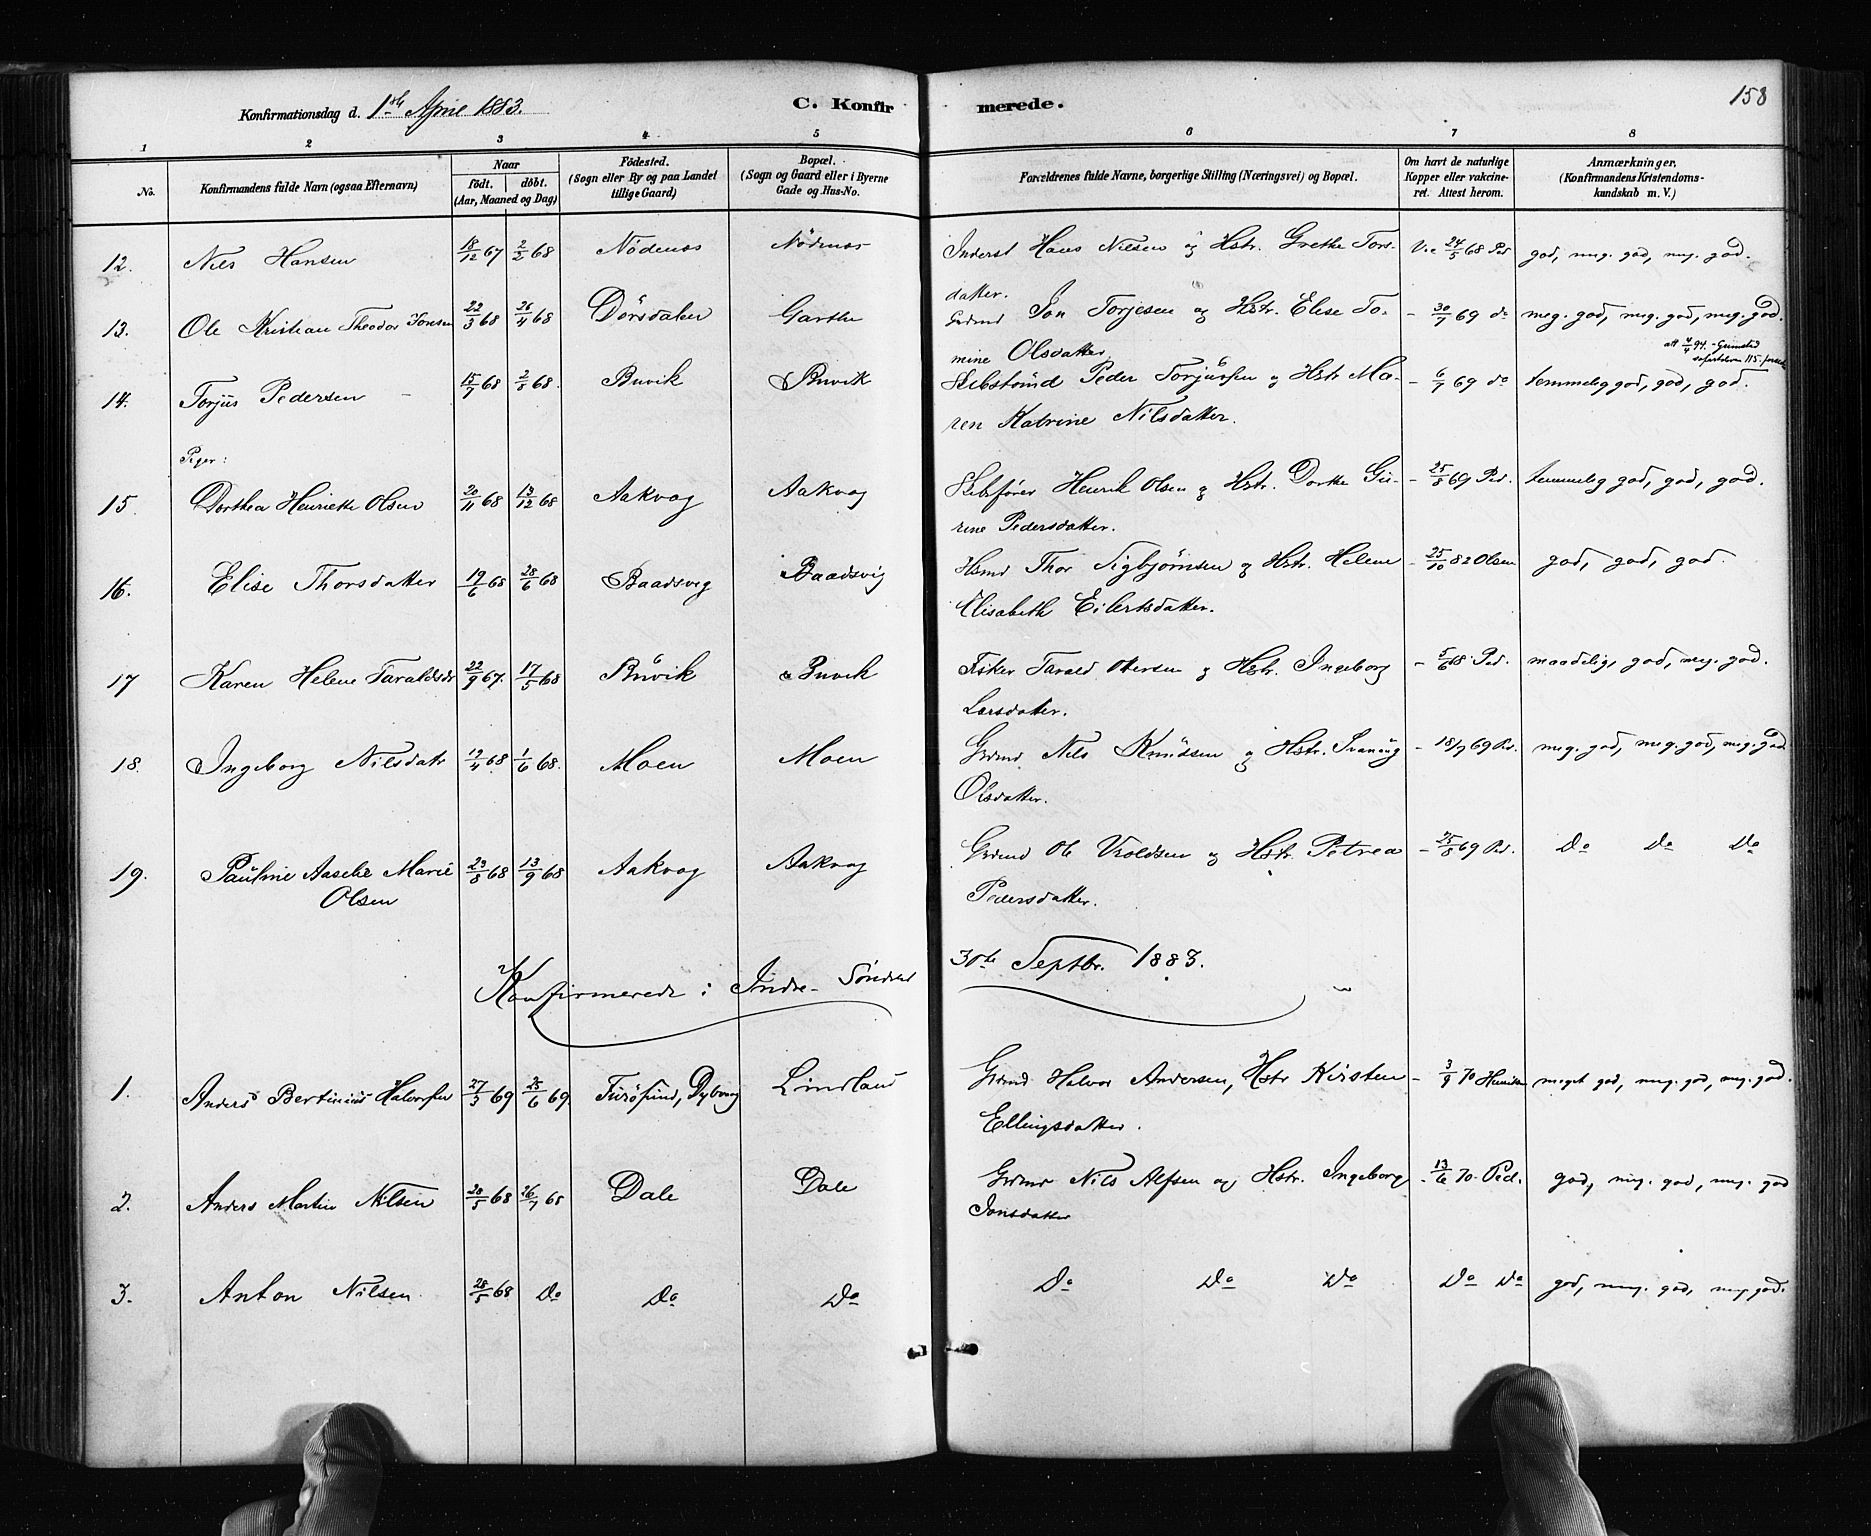 Konfirmationsdag d. 1ste April 1883. C. Konfirmerede. 158
1 2 3 4 5 6 7 8
No. Konfirmandens fulde Navn (ogsaa Efternavn) Naar födt. döbt. (Aar, Maaned og Dag) Födested. (Sogn eller By og paa Landet tillige Gaard) Bopæl. (Sogn og Gaard eller i Byerne Gade og Hus-No. Forældrenes fulde Navne, borgerlige Stilling (Næringsvei) og Bopæl. Om havt de naturlige Kopper eller vakcineret. Attest herom. Anmærkninger. (Konfirmandens Kristendomskundskab m. V.)
12. Nils Hansen 18/12 67 2/2 68 Nödenes Nödenes Inderst Hans Nilsen og Hstr. Grethe Tors- Vac 24/5 68 Ped god, meg. god, meg. god.
datter.
13. Ole Kristian Theodor Jonsen 22/3 68 26/4 68 Dörsdalen Garthe Grdmd Jon Torjesen og Hstr. Elise To- - 30/7 69 do meg. god, meg. god, meg. god.
mine Olsdatter
att 4/4 94. - Grimstad
14. Torjus Pedersen 15/7 68 2/8 68. Buvik Buvik Skibstömd Peder Torjussen og Hstr Ma- - 6/7 69 do temmelig god, god, god.
ren Katrine Nilsdatter.
Piger:
15. Dorthea Henriette Olsen 20/11 68 13/12 68 Aakvag Aakvag Skibsförer Henrik Olsen og Hstr. Dorthe Gu- - 25/8 69 Ped. temmelig god, god, god.
rine Pedersdatter.
16. Elise Thorsdatter 19/6 68 28/6 68 Baadsvig Baadsvig Hsmd Thor Sigbjørnsen og Hstr. Helene - 25/10 82 Olsen god, god, god.
Elisabeth Eilertsdatter.
17 Karen Helene Taraldsdr 22/9 67. 17/5 68 Buvik Buvik Fisker Tarald Olsersen og Hstr. Ingeborg - 5/6 68 Ped. maadelig, god, meg. god.
Larsdatter.
18. Ingeborg Nilsdatr 12/4 68 1/6 68. Moen Moen Grdmd Nils Knudsen og Hstr. Svanaug - 18/7 69 Pd. meg. god, meg. god, meg. god
Olsdatter.
19. Pauline Aasche Marie 23/8 68 13/9 68 Aakvag Aakvag Grdmd Ole Vroldsen og Hstr. Petrea - 25/8 69 Pd. Do Do Do
Olsen Pedersdatter.
Konfirmerede i Indre- Söndeled 30te Septbr. 1883.
1. Anders Bertinius Halvorsen 27/3 69 25/6 69. Furösund, Dybvaag Lindland Grdmd Halvor Andersen, Hstr Kirsten - 3/9 70 meget god, meg. god, meg. god.
Ellingsdatter.
2. Anders Martin Nilsen 28/5 68 26/7 68 Dale Dale Grdmd Nils Alfsen og Hstr. Ingeborg - 13/6 70. Ped. god, meg. god, meg. god
Jonsdatter
3. Anton Nilsen 28/5 68 Do Do Do Do Do Do Do Do god, meg. god, meg god.